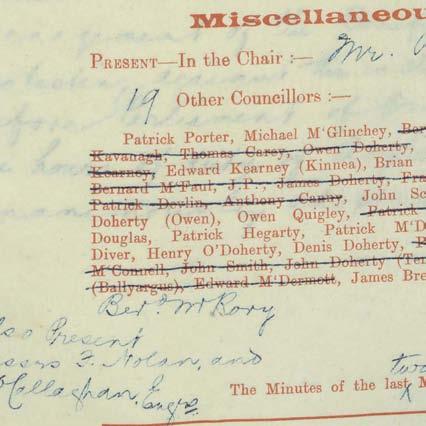 Miscellaneou
PRESENT—In the Chair :— Mr.
19 Other Councillors :—
Patrick Porter, Michael M'Glinchey, Ber
Kavanagh, Thomas Carey, Owen Doherty,
Kearney, Edward Kearney (Kinnea), Brian
Bernard M'Faul, J.P., James Doherty, Fra
Patrick Devlin, Anthony Canny, John Sc
Doherty (Owen), Owen Quigley, Patrick
Douglas, Patrick Hegarty, Patrick M'D
Diver, Henry O'Doherty, Denis Doherty,
M'Connell, John Smith, John Doherty (Ter
(Ballyargus), Edward M'Dermott, James Bre
Berd. McRory
lso Present
essrs F. Nolan, and
O'Callaghan, Engrs.
two
The Minutes of the last M